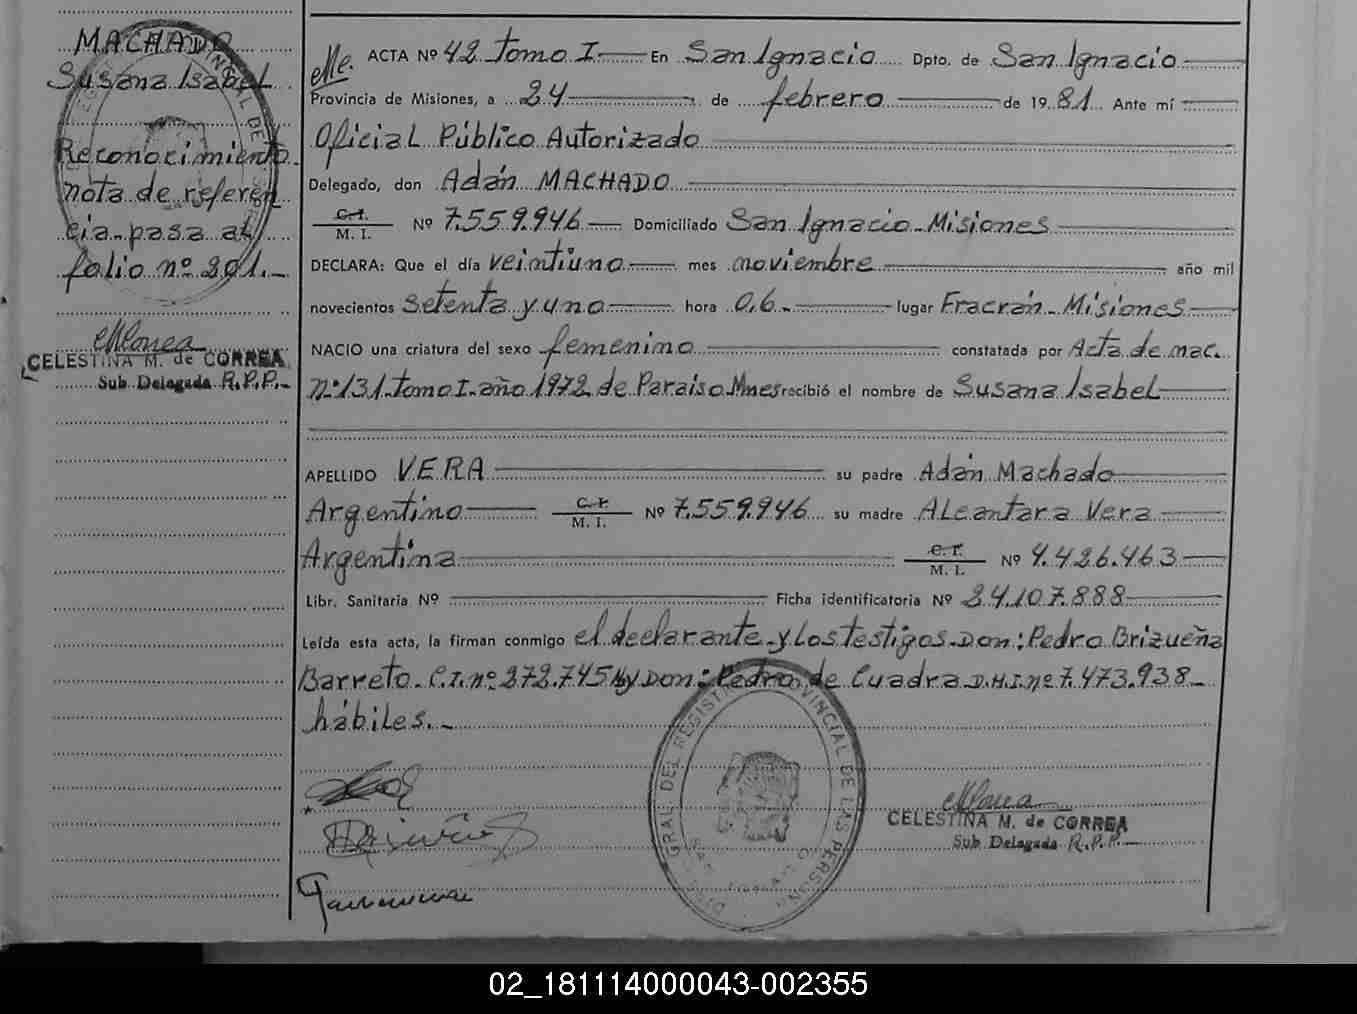 MACHADO
Susana Isabel
Reconocimiento
nota de referen
cia - pasa al
folio nº 201.-
CELESTINA M. de CORREA
Sub Delegada R.P.P.-
ACTA Nº 42 Tomo I En San Ignacio Dpto. de San Ignacio
Provincia de Misiones, a 24 de febrero de 1981 Ante mí
Oficial Público Autorizado
Delegado, don Adán MACHADO
C. I.
M. I. Nº 7.559.946 Domiciliado San Ignacio - Misiones
DECLARA: Que el día veintiuno mes noviembre año mil
novecientos setenta y uno hora 06 - lugar Fracrán - Misiones
NACIO una criatura del sexo femenino constatada por Acta de nac.
nº 131 - Tomo I - año 1972 de Paraiso Mnes recibió el nombre de Susana Isabel
APELLIDO VERA su padre Adán Machado
Argentino C. I.
M. I. Nº 7.559.946 su madre Alcantara Vera
Argentina C. I.
M. I. Nº 4.426.463
Libr. Sanitaria Nº Ficha identificatoria Nº 24.107.888
Leída esta acta, la firman conmigo el declarante y los testigos - Don: Pedro Brizueña
Barreto - C.I. nº 272.745 y Don: Pedro de Cuadra D.N.I nº 7.473.938 -
hábiles.-
DIREC. GRAL. DEL REGISTRO PROVINCIAL DE LAS PERSONAS
SAN IGNACIO
CELESTINA M. de CORREA
Sub Delegada R.P.P.-
02_181114000043-002355